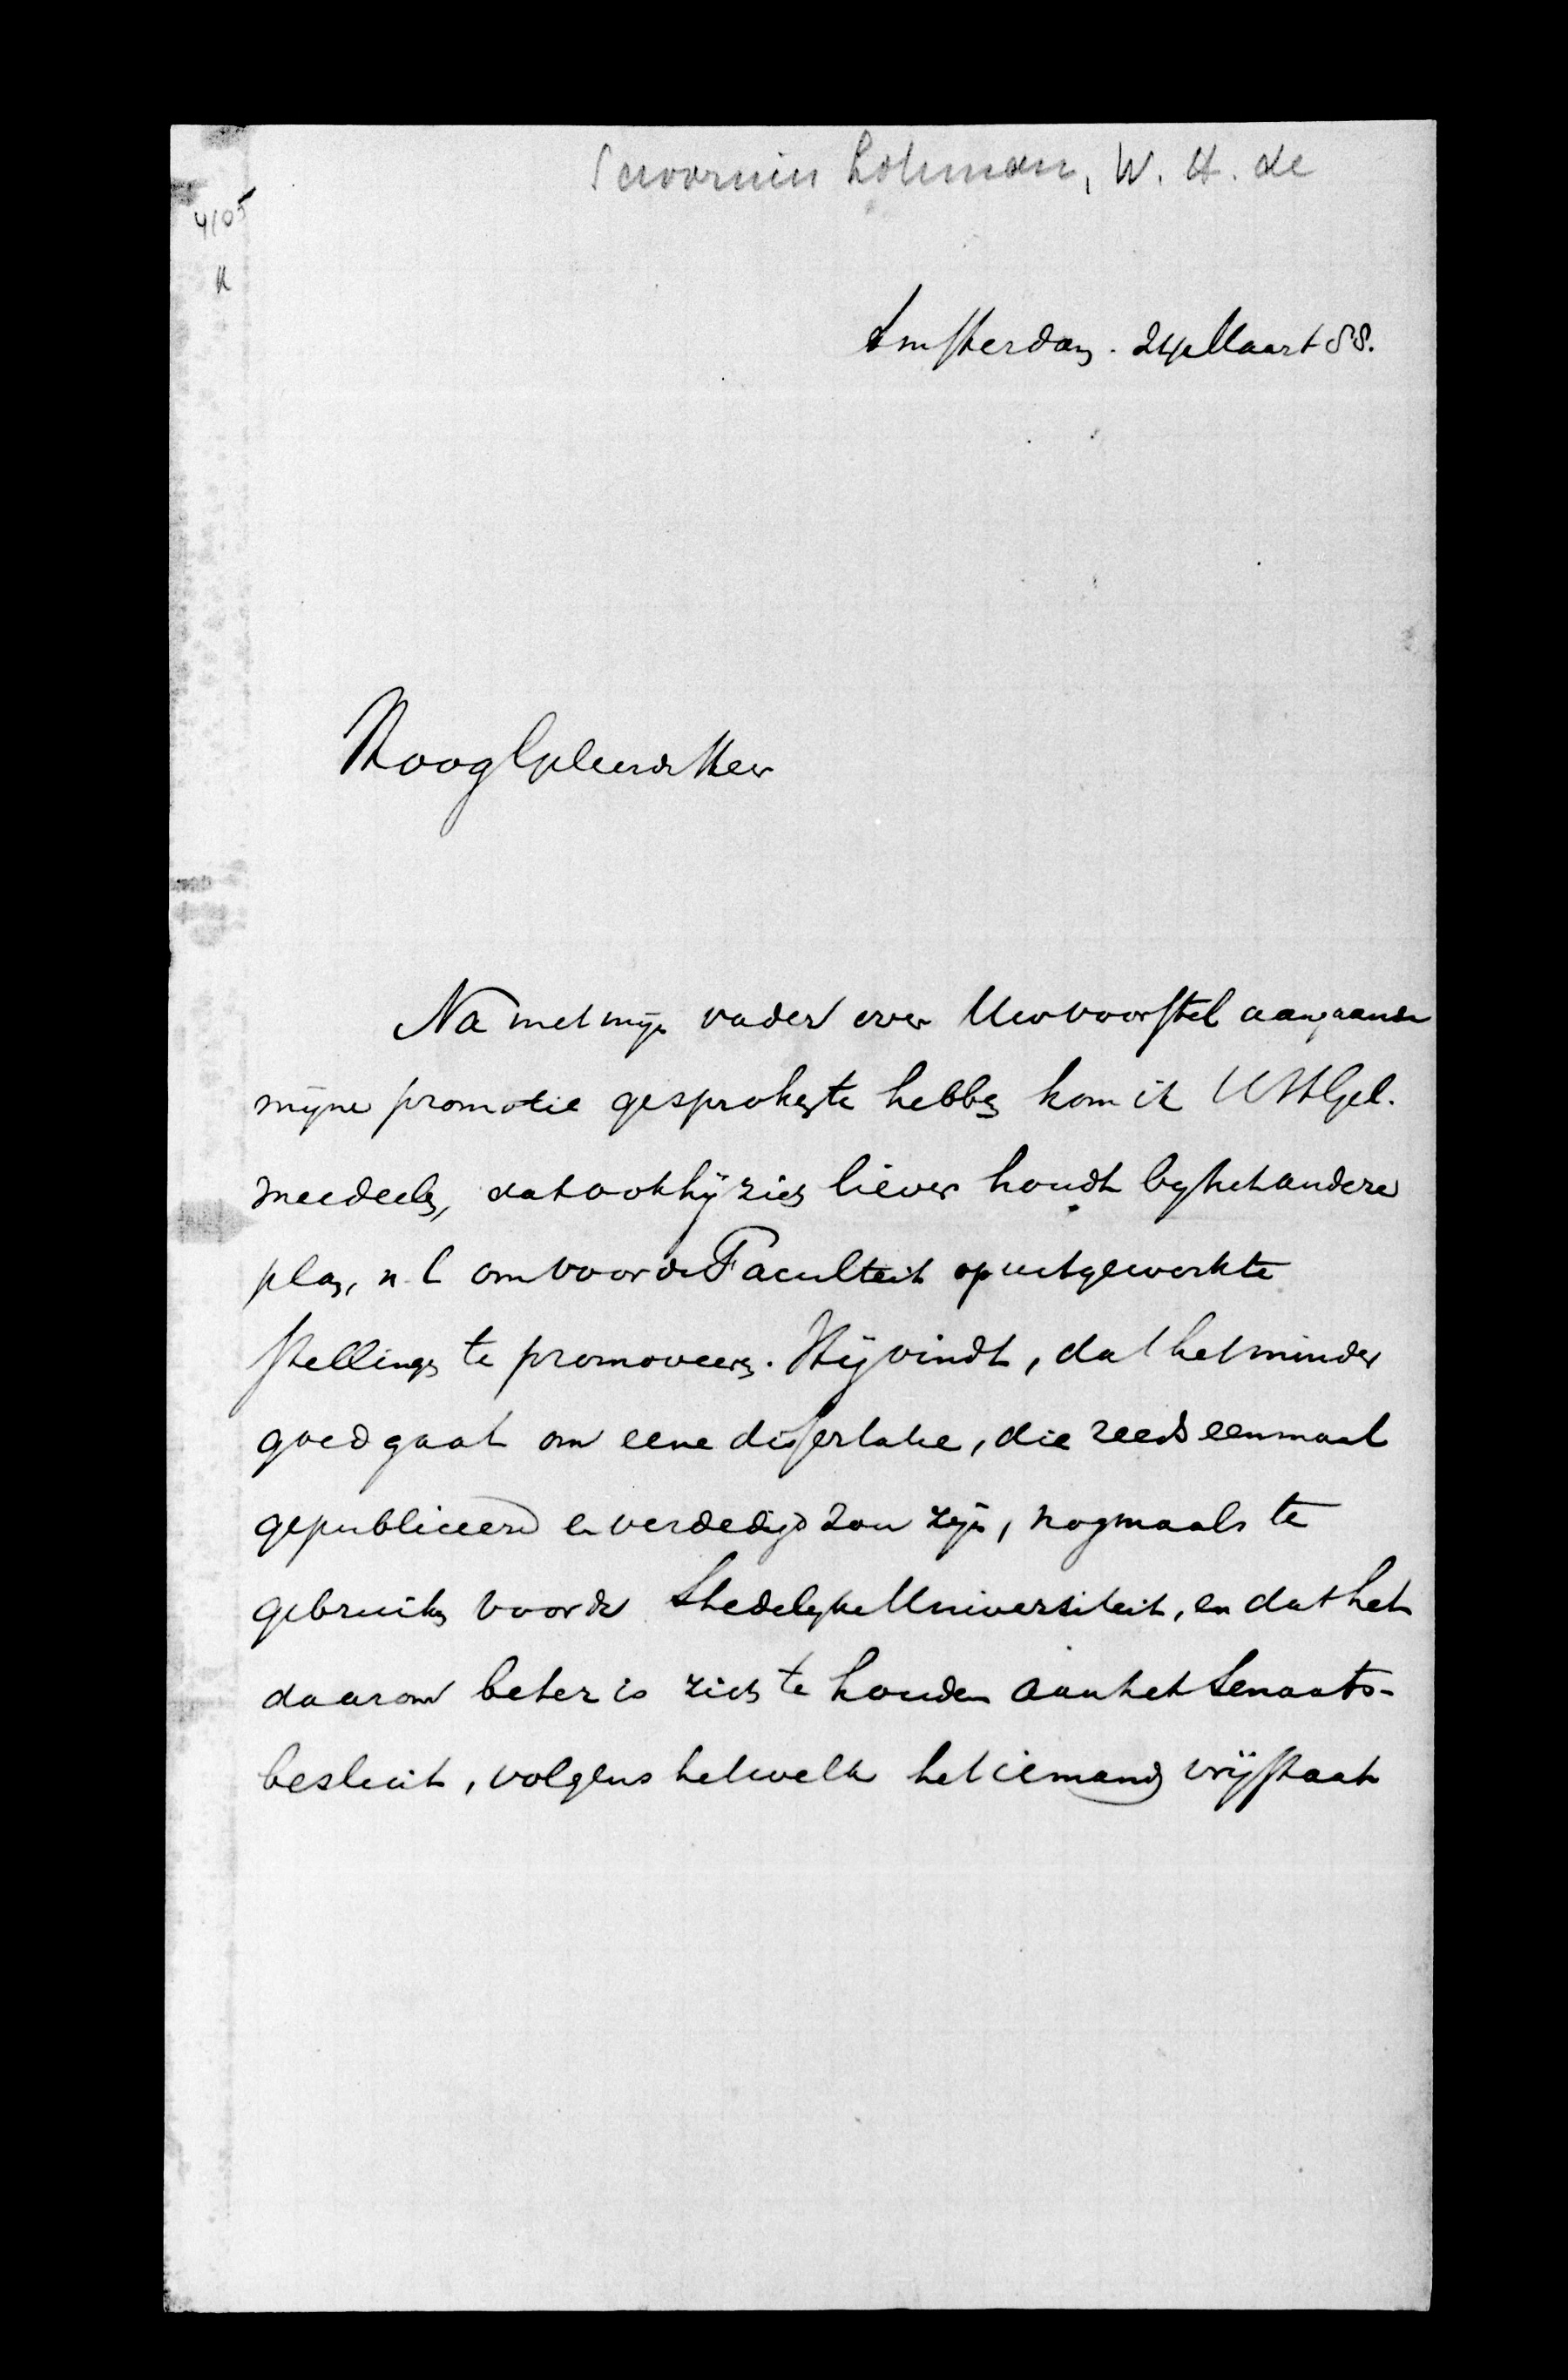 Savornin Lohman, W. H. de
4105
K
Amsterdam. 24 Maart 88.
Hooggeleerde Heer
Na met mijn vader over Uw voorstel aangaande
mijne promotie gesproken te hebben kom ik UHGel.
meedeelen, dat ook hij zich liever houdt bij het andere
plan, n. l om voor de Faculteit op uitgewerkte
stellingen te promoveeren. Hij vindt, dat het minder
goed gaat om eene dissertatie, die reeds eenmaal
gepubliceerd en verdedigd zou zijn, nogmaals te
gebruiken voor de Stedelijke Universiteit, en dat het
daarom beter is zich te houden aan het Senaats-
besluit, volgens hetwelk het iemand vrijstaat